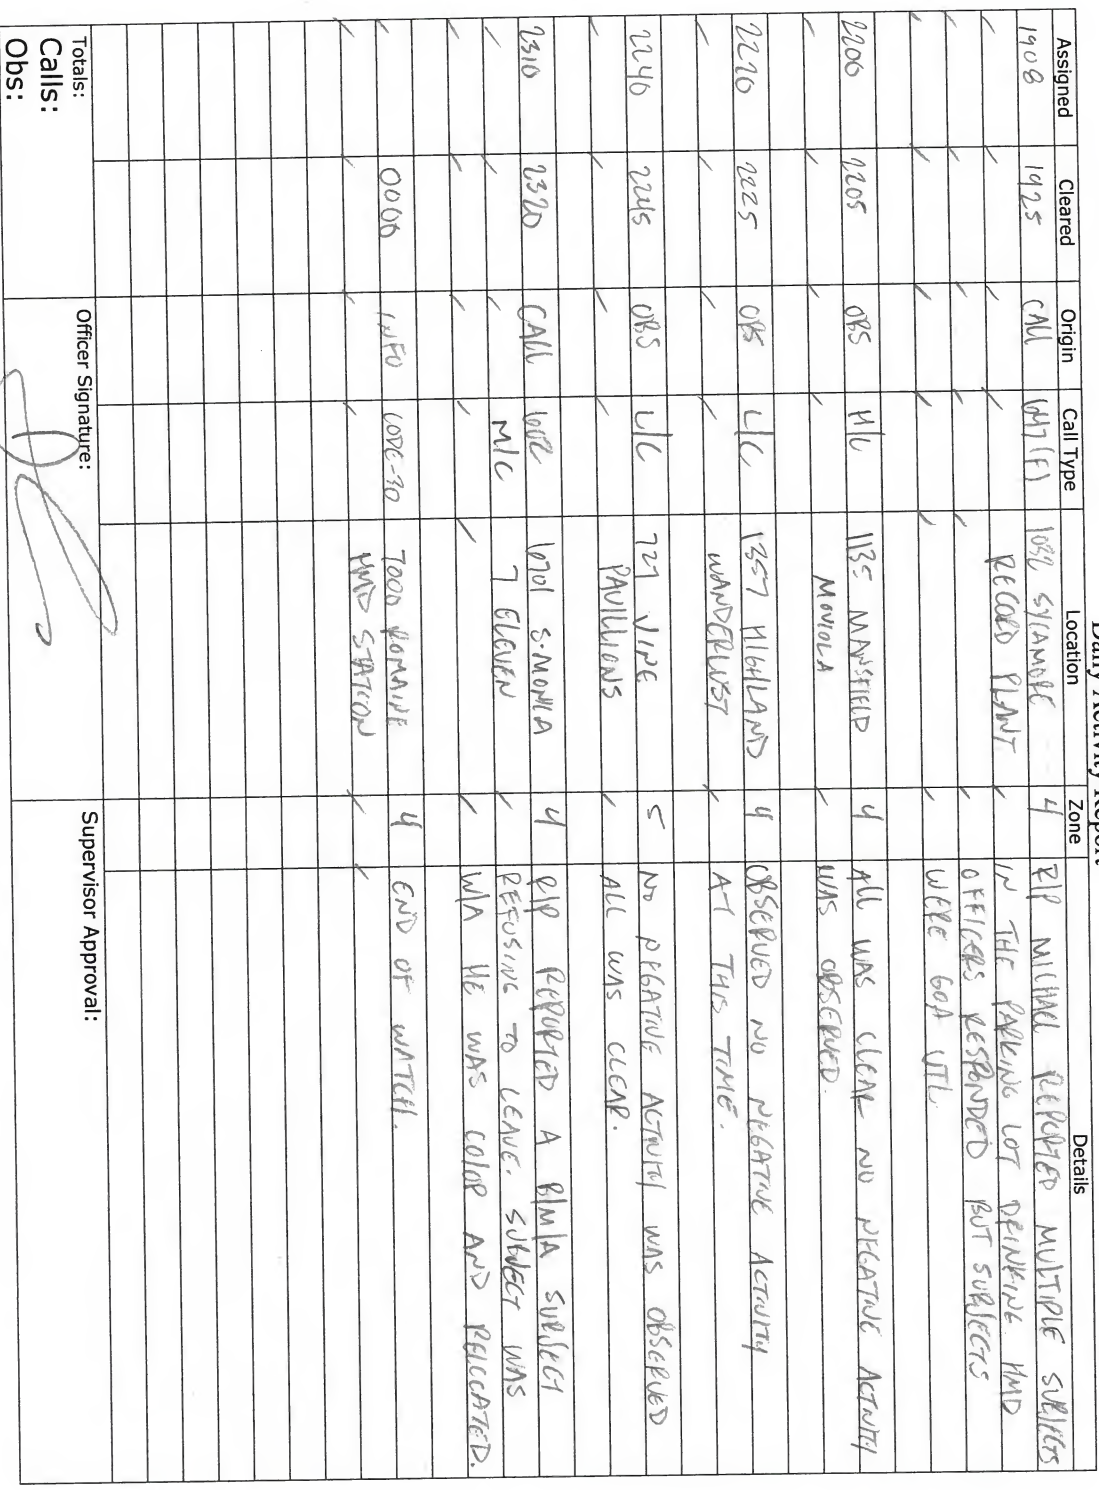 Daily Activity Report
Assigned Cleared Origin Call Type Location Zone Details
1908 1925 CALL 647(F) 1032 SYCAMORE 4 R/P MICHAEL REPORTED MULTIPLE SUBJECTS
RECORD PLANT IN THE PARKING LOT DRINKING. HMD
OFFICERS RESPONDED BUT SUBJECTS
WERE GOA UTL
2200 2205 OBS H/C 1135 MANSFIELD 4 ALL WAS CLEAR NO NEGATIVE ACTIVITY
MOVIOLA WAS OBSERVED
2220 2225 OBS L/C 1357 HIGHLAND 4 OBSERVED NO NEGATIVE ACTIVITY
WANDERLUST AT THIS TIME.
2240 2245 OBS L/C 727 VINE 5 NO NEGATIVE ACTIVITY WAS OBSERVED
PAVILLIONS ALL WAS CLEAR.
2310 2320 CALL 602 6701 S. MONICA 4 R/P REPORTED A B/M/A SUBJECT
M/C 7 ELEVEN REFUSING TO LEAVE. SUBJECT WAS
W/A HE WAS COLOR AND RELOCATED.
0000 INFO CODE-30 7000 ROMAINE 4 END OF WATCH.
HMD STATION
Totals:
Calls:
Obs:
Officer Signature:
Supervisor Approval: